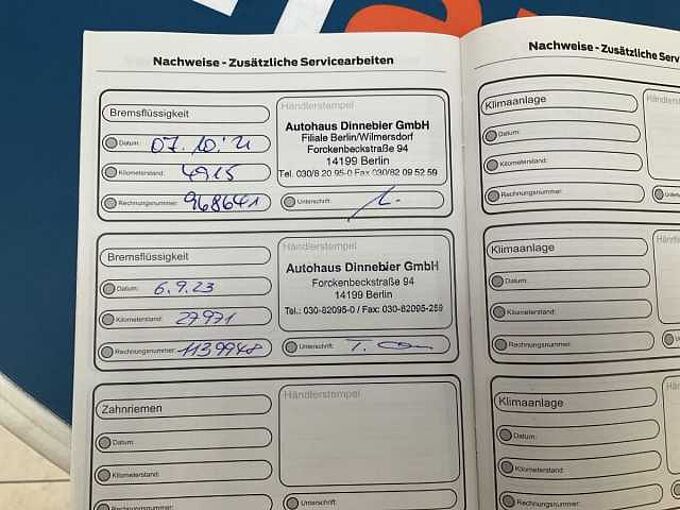 Nachweise - Zusätzliche Servicearbeiten
Bremsflüssigkeit
Datum: 07.10.'21
Kilometerstand: 4915
Rechnungsnummer: 968641
Händlerstempel
Autohaus Dinnebier GmbH
Filiale Berlin/Wilmersdorf
Forckenbeckstraße 94
14199 Berlin
Tel. 030/8 20 95-0 Fax 030/82 09 52 59
Unterschrift:
Bremsflüssigkeit
Datum: 6.9.23
Kilometerstand: 27971
Rechnungsnummer: 1139948
Händlerstempel
Autohaus Dinnebier GmbH
Forckenbeckstraße 94
14199 Berlin
Tel.: 030-82095-0 / Fax: 030-82095-259
Unterschrift:
Zahnriemen
Datum:
Kilometerstand:
Rechnungsnummer:
Händlerstempel
Unterschrift:
Nachweise - Zusätzliche Serv
Klimaanlage
Datum:
Kilometerstand:
Rechnungsnummer:
Händlerstem
Unterschrift
Klimaanlage
Datum:
Kilometerstand:
Rechnungsnummer:
Händ
Klimaanlage
Datum:
Kilometerstand:
Rechnungsnummer: